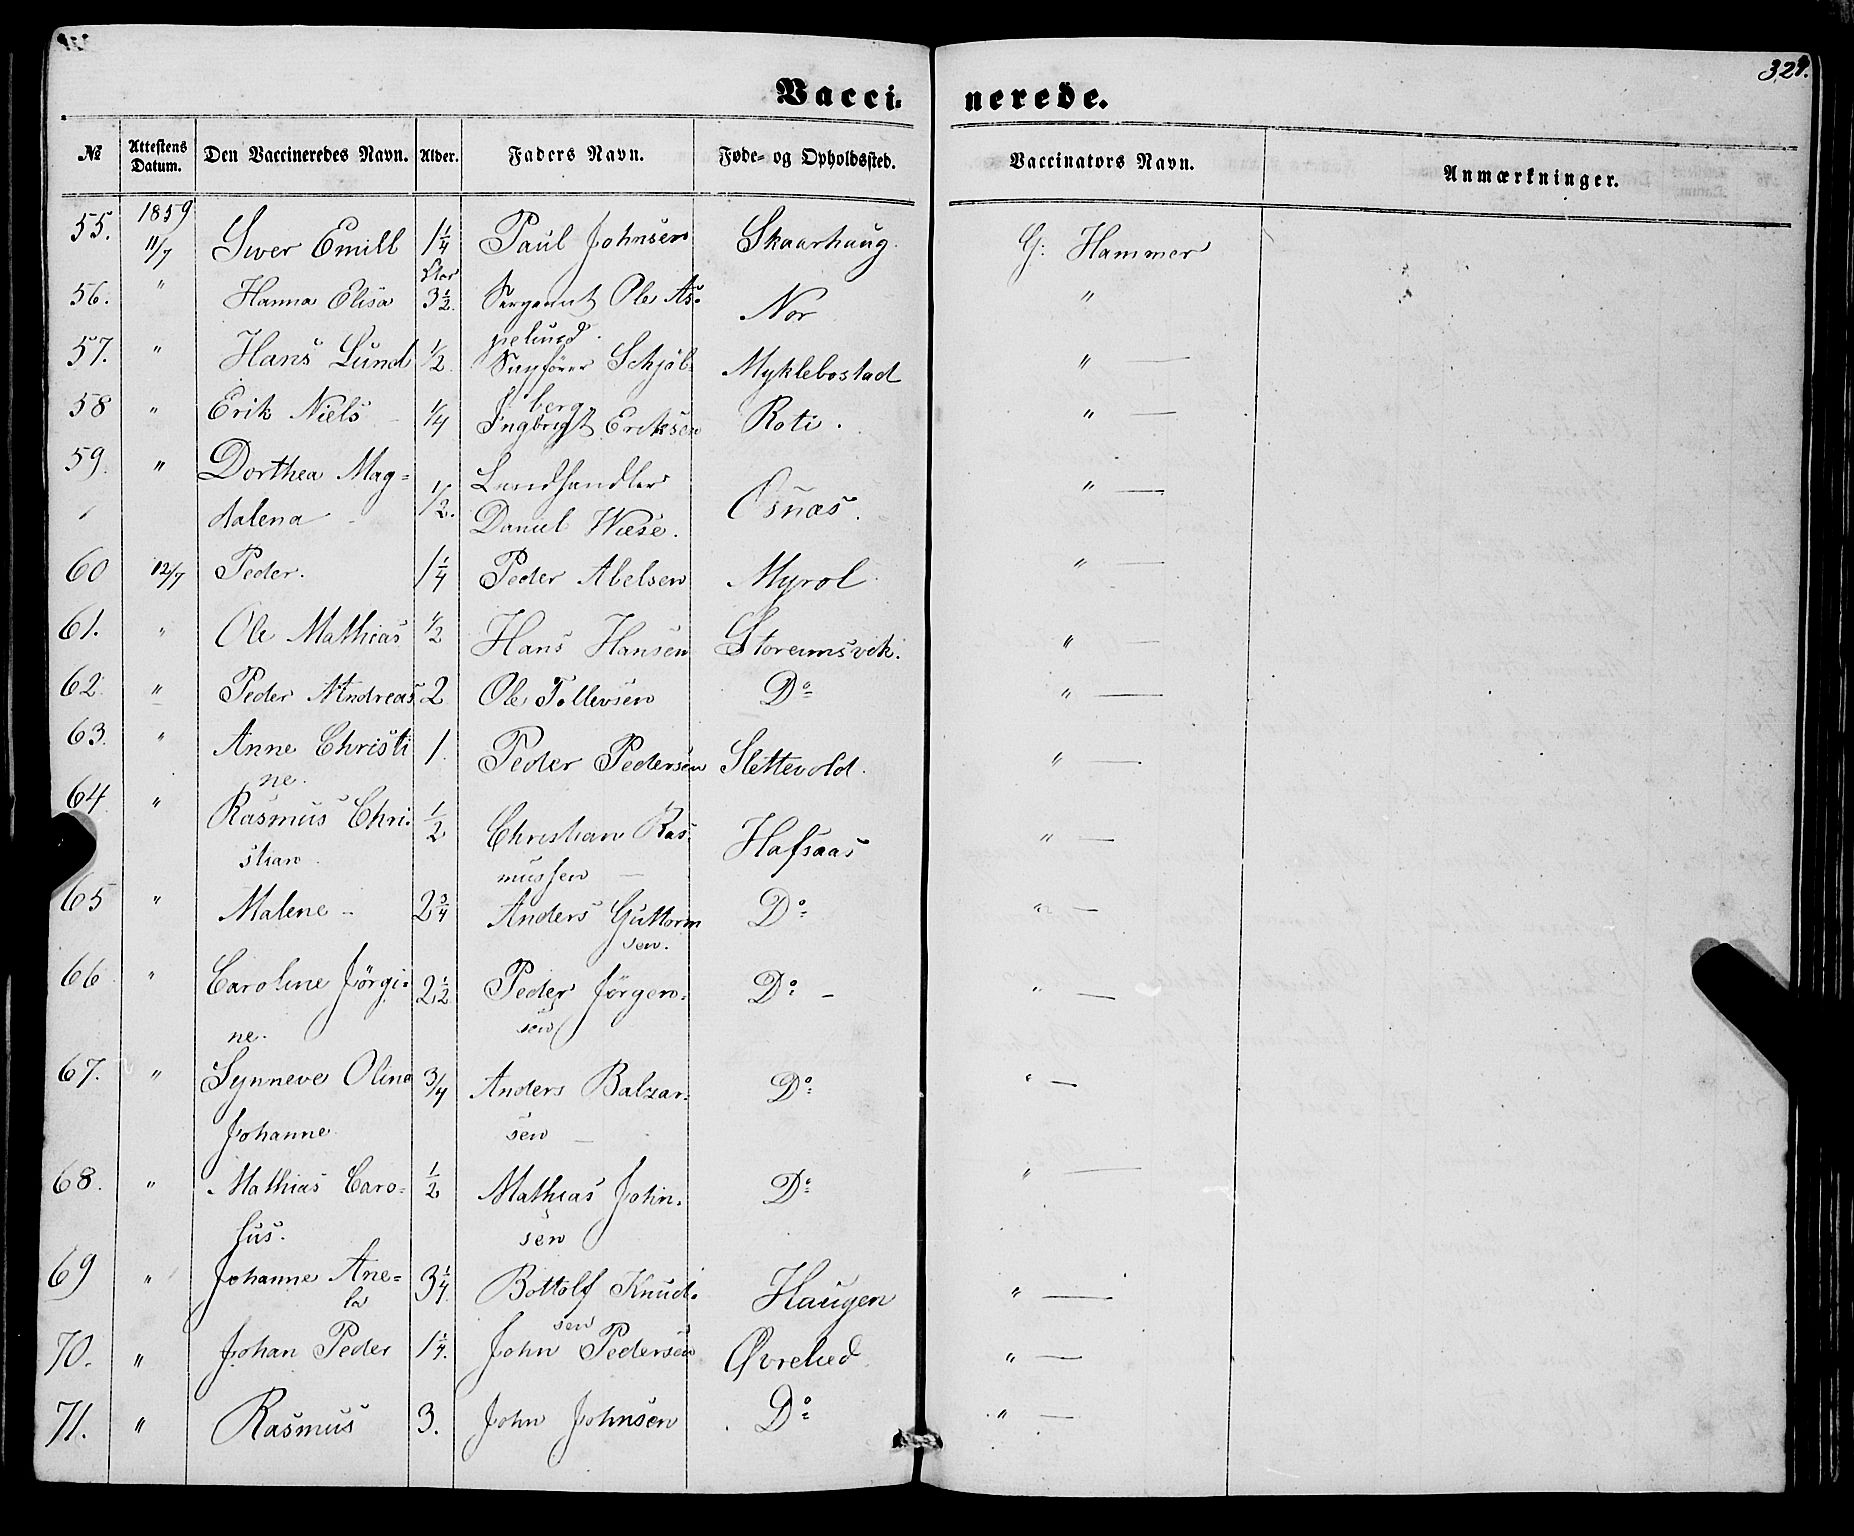 329.
Vacci- nerede.
№ Attestens Datum. Den Vaccineredes Navn. Alder. Faders Navn. Føde- og Opholdssted. Vaccinators Navn. Anmærkninger.
1859
55. 11/7 Iwer Emill 1 1/4 Paul Johnsen Skaarhaug. G: Hammer
56. " Hanna Elisa 3 1/2. Sergeant Ole As- Nor "
pelund.
57. " Hans Lund 1/2. Schjöl- Myklebostad " —
berg.
58 " Erik Niels 1/4 Ingbrigt Eriksen Roti. " —
59. " Dorthea Mag= 1/2. Landhandler Osnæs. " —
dalena Daniel Wiese.
60 12/7 Peder. 1 1/4 Peder Abelsen Myrol " —
61. " Ole Mathias 1/2 Hans Hansen Storeimsvik. " —
62. " Peder Andreas 2 Ole Tollevsen Do " —
63. " Anne Christi 1. Peder Pedersen Slettevold. " —
ne.
64 " Rasmus Chri- 1/2 Christian Ras- Hafsaas " —
stian mussen —
65 " Malene - 2 3/4 Anders Guttorm Do " —
sen.
66 " Caroline Jörgi- 2 1/2 Peder Jörgen- Do - " —
ne. sen
67. " Synneve Olina 3/4 Anders Balzar- Do " —
Johanne sen —
68. " Mathias Caro- 1/2 Mathias John- Do " —
lus. sen
69 " Johanne Ane= 3 1/4. Bottolf Knud- Haugen " —
la sen
70. " Johan Peder 1 1/4. John Pedersen Øvrelied. " —
71. " Rasmus 3. John Johnsen Do " —